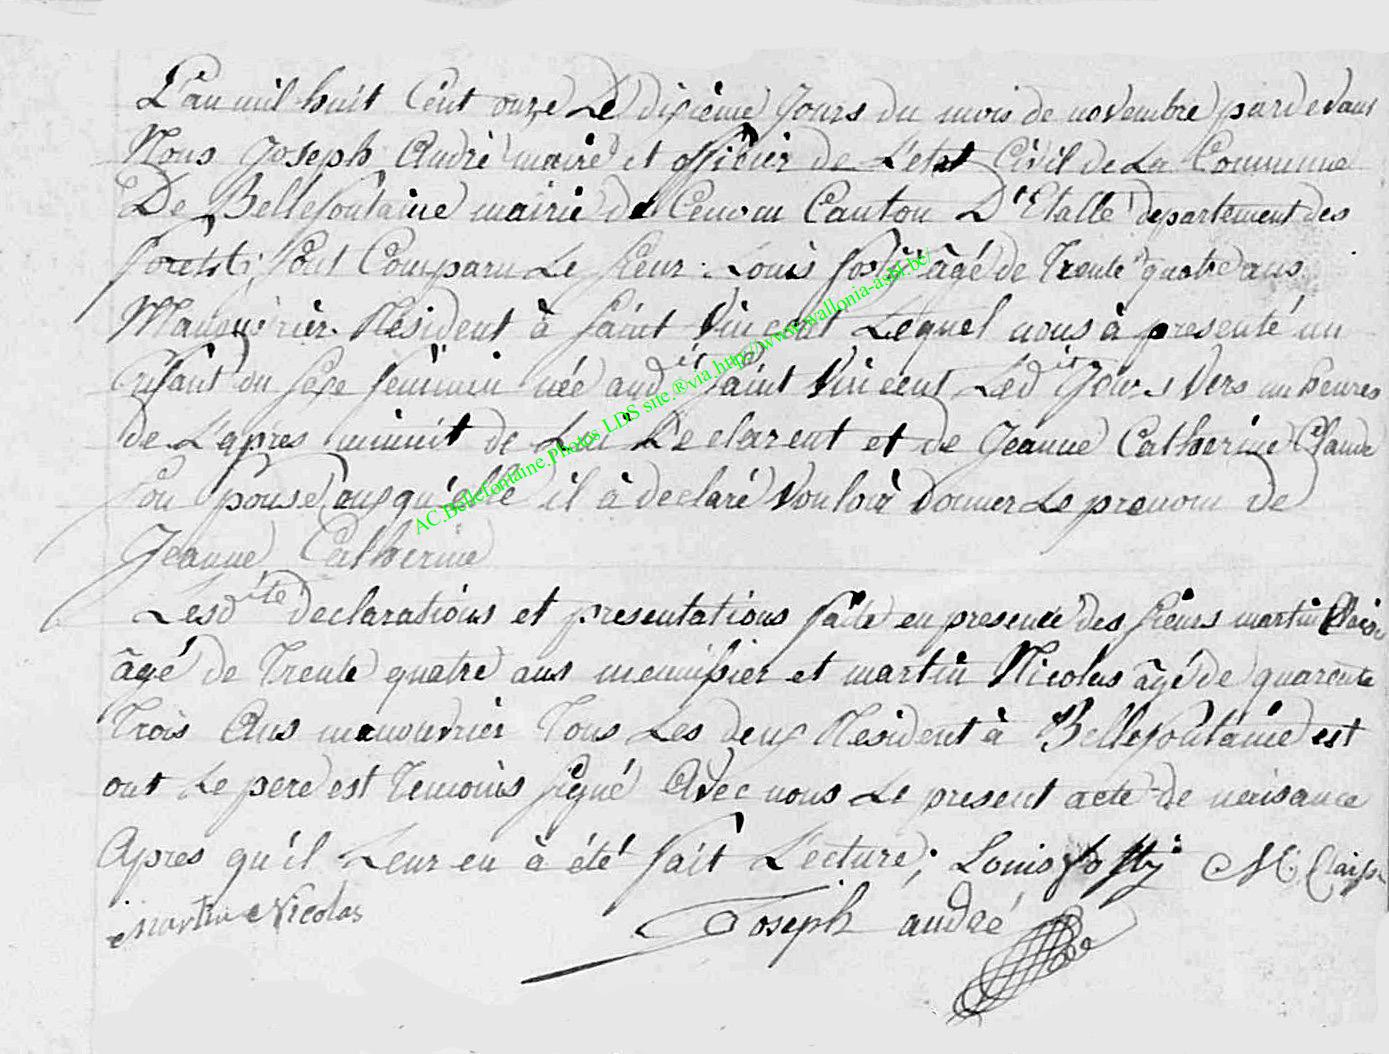 L'an mil huit Cent onze Le dixième Jours du mois de novembre pardevant
Nous Joseph André maire et officier de L'etat Civil de La Commune
De Bellefontaine mairie de Canton D'Etalle departement des
forets Comparu Le sieur Louis fosty âgé de Trente quatre ans
Manouvrier Resident à saint Vincent Lequel nous à presenté un
Enfant du sexe feminin née audit saint Vincent Ledit Jours vers un heures
de L'apres minuit de Lui Declarent et de Jeanne Catherine Claude
son pouse ausquelle il à declaré vouloir Donner Le prenom de
Jeanne Catherine
Lesdite declarations et presentations faite en presence des sieurs martin
âgé de Trente quatre ans menuisier et martin Nicolas âgé de quarente
Trois Ans manouvrier Tous Les deux Resident à Bellefontaine est
ont Le pere est Temoins signé Avec nous Le present acte de naisance
Apres qu'il Leur en à été fait Lecture; Louis fosty M
martin Nicolas Joseph andré
AC.Bellefontaine.Photos LDS site.®via.http://www.wallonia-asbl.be/